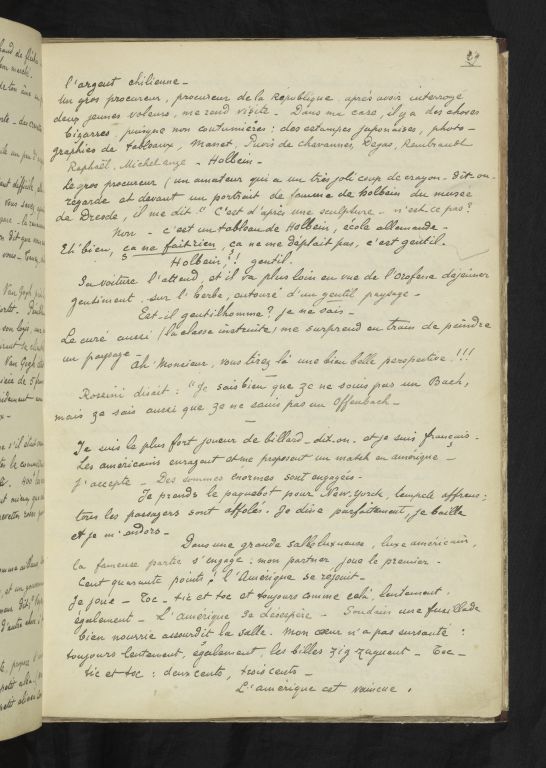 24
l'argent chilienne_
Un gros procureur, procureur de la République, après avoir interrogé
deux jeunes voleurs, me rend visite _ Dans ma case, il y a des choses
bizarres, puisque non coutumières: des estampes japonaises, photo-
graphies de tableaux, Manet, Puvis de Chavannes, Degas, Rembrandt
Raphaël, Michel ange _ Holbein_
Le gros procureur (un amateur qui a un très joli coup de crayon_ dit-on_
regarde et devant un portrait de femme de Holbein du musée
de Dresde, il me dit " C'est d'après une sculpture_ n'est-ce pas?
Non _ c'est un tableau de Holbein, ecole allemande_
Et bien, ça ne fait rien, ça ne me déplait pas, c'est gentil.
Holbein?! gentil.
Sa voiture l'attend, et il va plus loin en vue de l'orofena déjeuner
gentiment sur l'herbe, entouré d'un gentil paysage_
Est-il gentilhomme? je ne sais_
Le curé aussi (la classe instruite) me surprend en train de peindre
un paysage_ Ah! Monsieur, vous tirez là une bien belle perspective!!!
Rossini disait: "Je sais bien que ze ne souis pas un Bach,
mais ze sais aussi que ze ne souis pas un Offenbach_
Je suis le plus fort joueur de billard_ dit-on. et je suis français.
Les américains enragent et me proposent un match en amérique_
j'accepte_ Des sommes énormes sont engagées_
Je prends le paquebot pour New-Yorck, tempête affreuse;
tous les passagers sont affolés. Je dine parfaitement, je baille
et je m'endors_
Dans une grande salle luxueuse, luxe américain,
la fameuse partie s'engage: mon partner joue le premier_
Cent quarante points! l'Amérique se réjouit_
Je joue_ Toc_ tic et toc et toujours comme cela, lentement,
également_ L'Amérique se désespère_ Soudain une fusillade
bien nourrie assourdit la salle. Mon cœur n'a pas sursauté:
toujours lentement, également, les billes zigzaguent_ Toc_
tic et toc: deux cents, trois cents_
L'amérique est vaincue.